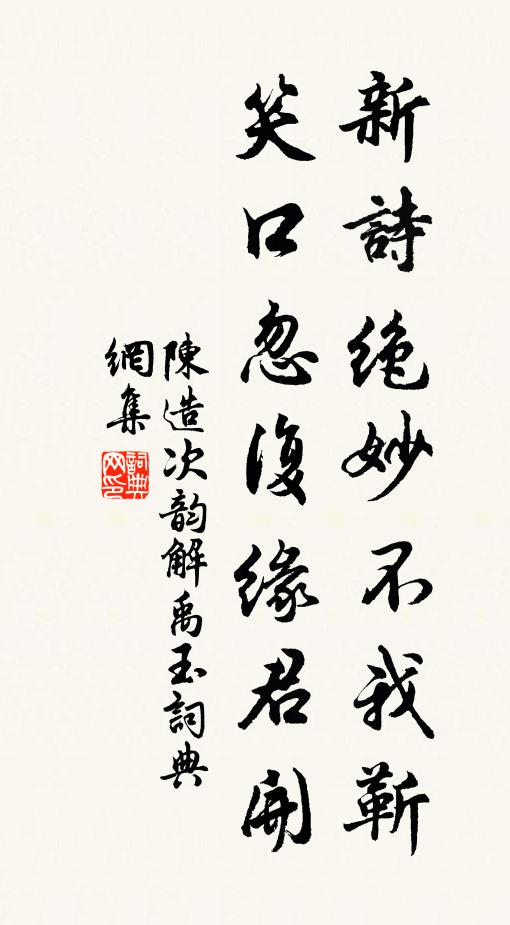 新詩絶妙不我靳
笑口忽復緣君開
陳造次韵解禹玉詞典
網集
詞典網印